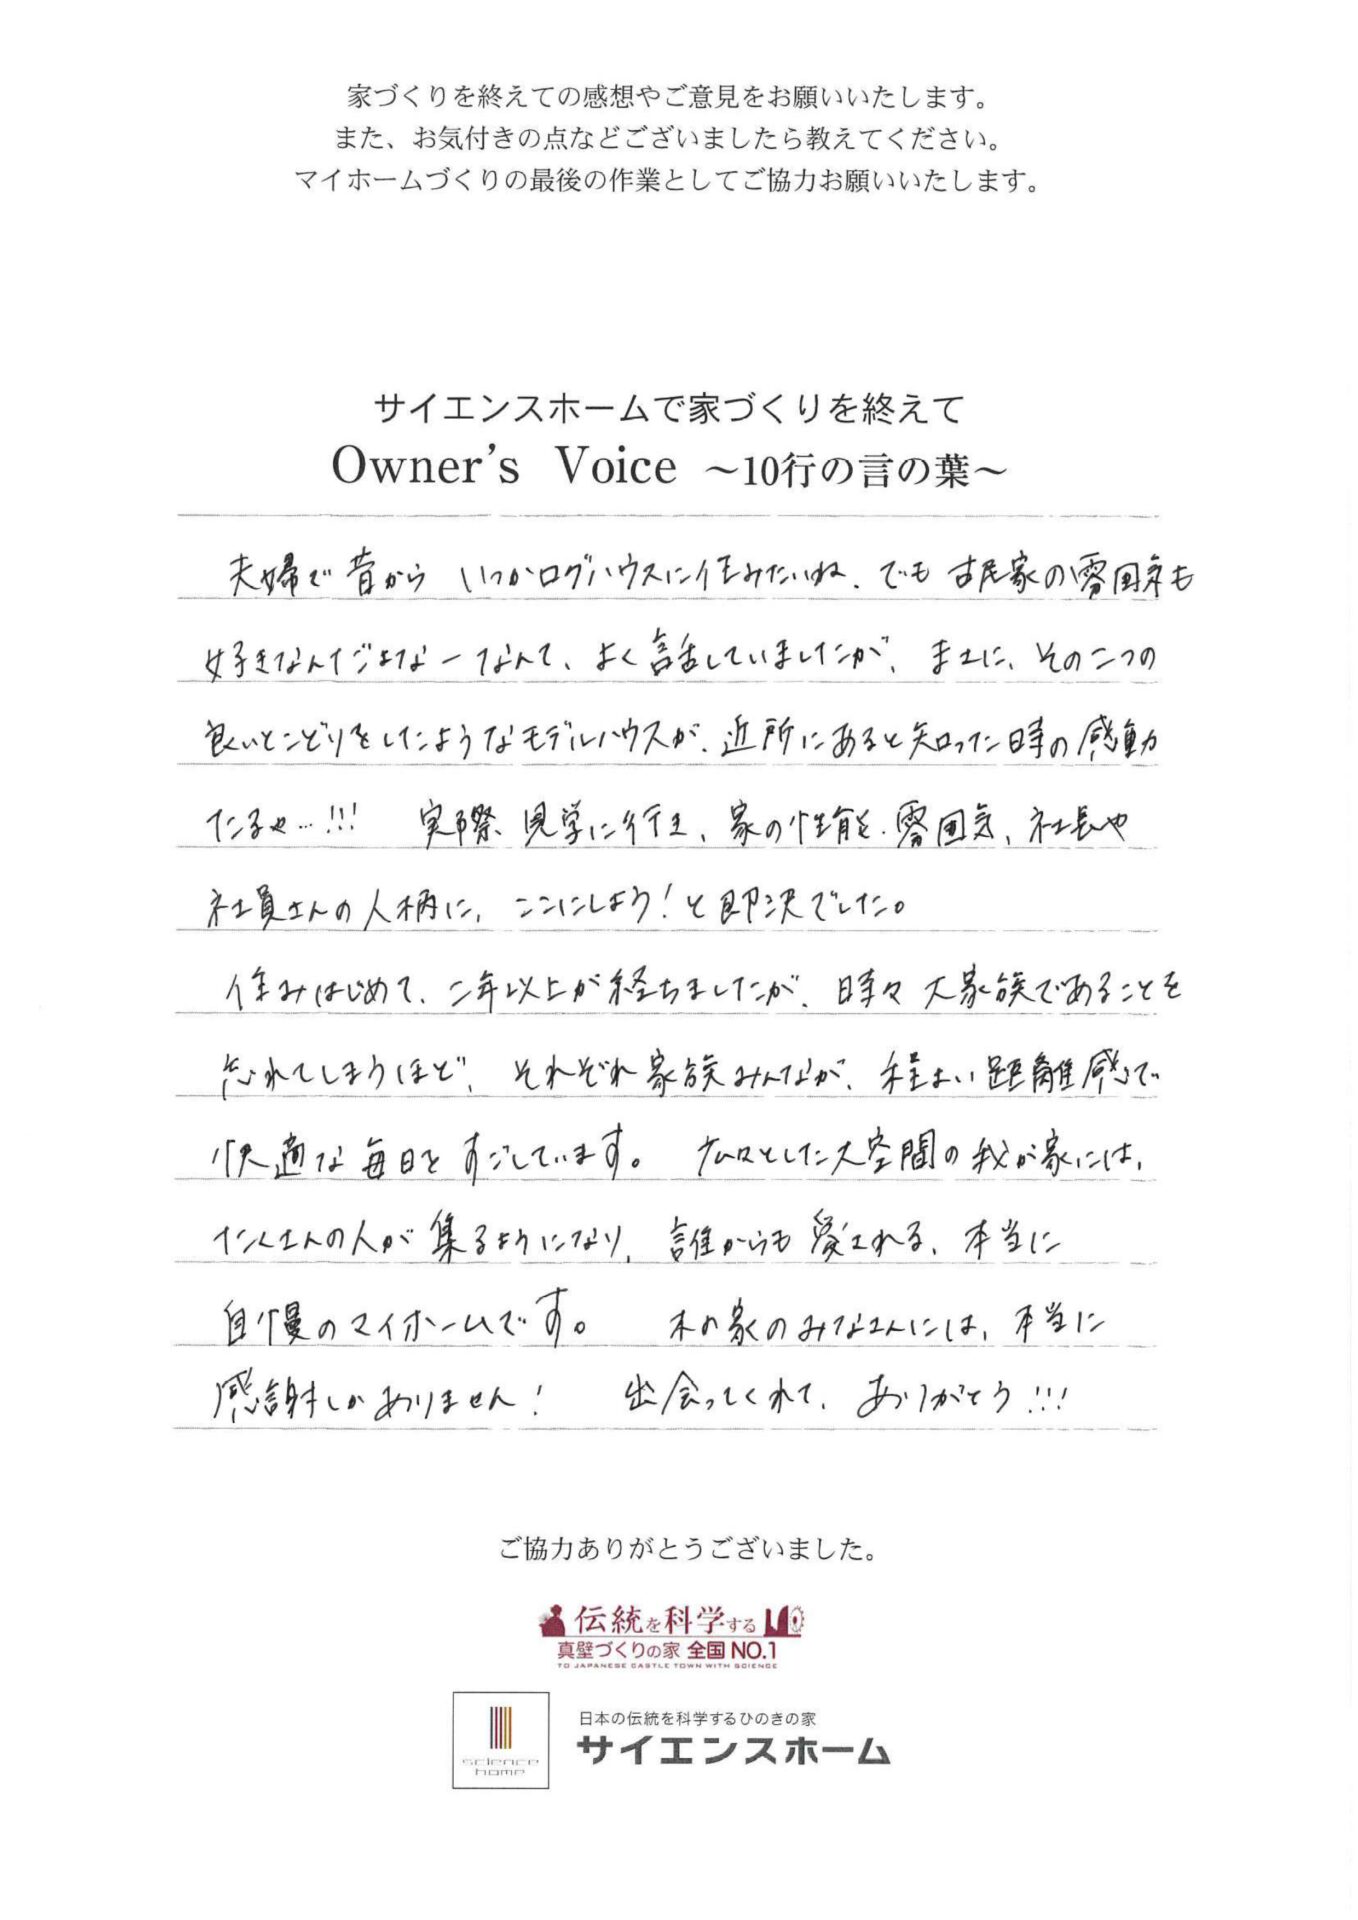 家づくりを終えての感想やご意見をお願いいたします。
また、お気付きの点などございましたら教えてください。
マイホームづくりの最後の作業としてご協力お願いいたします。
サイエンスホームで家づくりを終えて
Owner's Voice ～10行の言の葉～
夫婦で昔から いつかログハウスに住みたいね、でも 古民家の雰囲気も
好きなんだよなーなんて、よく話していましたが、まさに、その二つの
良いとこどりをしたようなモデルハウスが、近所にあると知った時の感動
たるや…!!! 実際、見学に行き、家の性能、雰囲気、社長や
社員さんの人柄に、ここにしよう！と即決でした。
住みはじめて、二年以上が経ちましたが、時々大家族であることを
忘れてしまうほど、それぞれ家族みんなが、程よい距離感で
快適な毎日をすごしています。 広々とした大空間の我が家には、
たくさんの人が集るようになり、誰からも愛される、本当に
自慢のマイホームです。 木の家のみなさんには、本当に
感謝しかありません！ 出会ってくれて、ありがとう!!!
ご協力ありがとうございました。
伝統を科学する
真壁づくりの家 全国NO.1
TO JAPANESE CASTLE TOWN WITH SCIENCE
日本の伝統を科学するひのきの家
サイエンスホーム
science
home